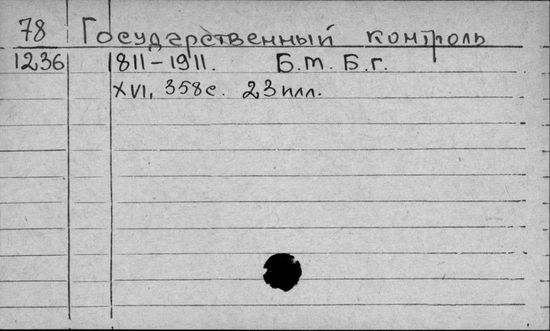 78 Государственный контроль
1236 1811-1911. Б.m. Б.г.
XVI, 358с. 23 илл.